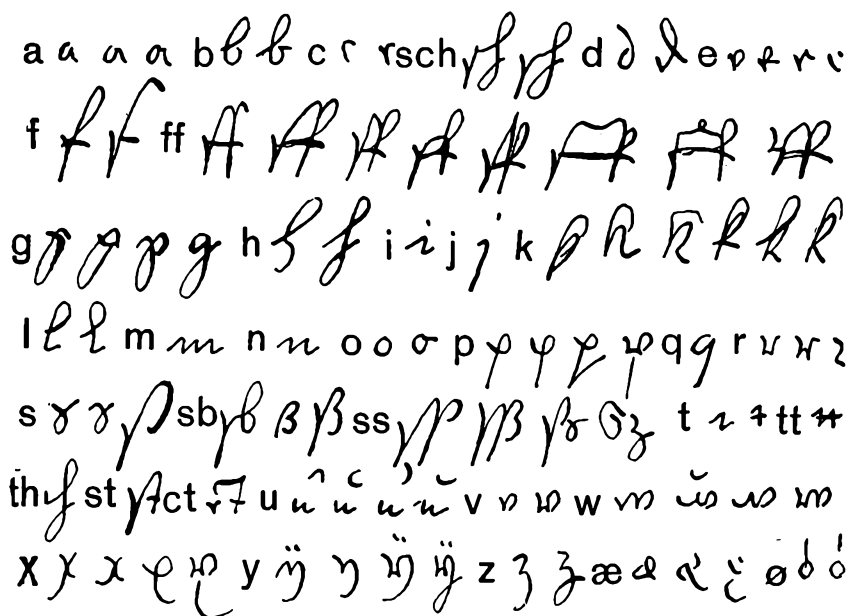 a a a a b b b c c rsch sch sch d d d e e e e e
f f f ff ff ff ff ff ff ff ff ff
g g g g g h h h i i j j k k k k k k k
l l l m m n n o o o p p p p p q q r r r r
s s s s sb sb ß ß ss ss ss ss t t t tt tt
th th st st ct ct u u u u u v v v w w w w w
x x x x x y y y y y z z z æ æ æ æ ø ø ø